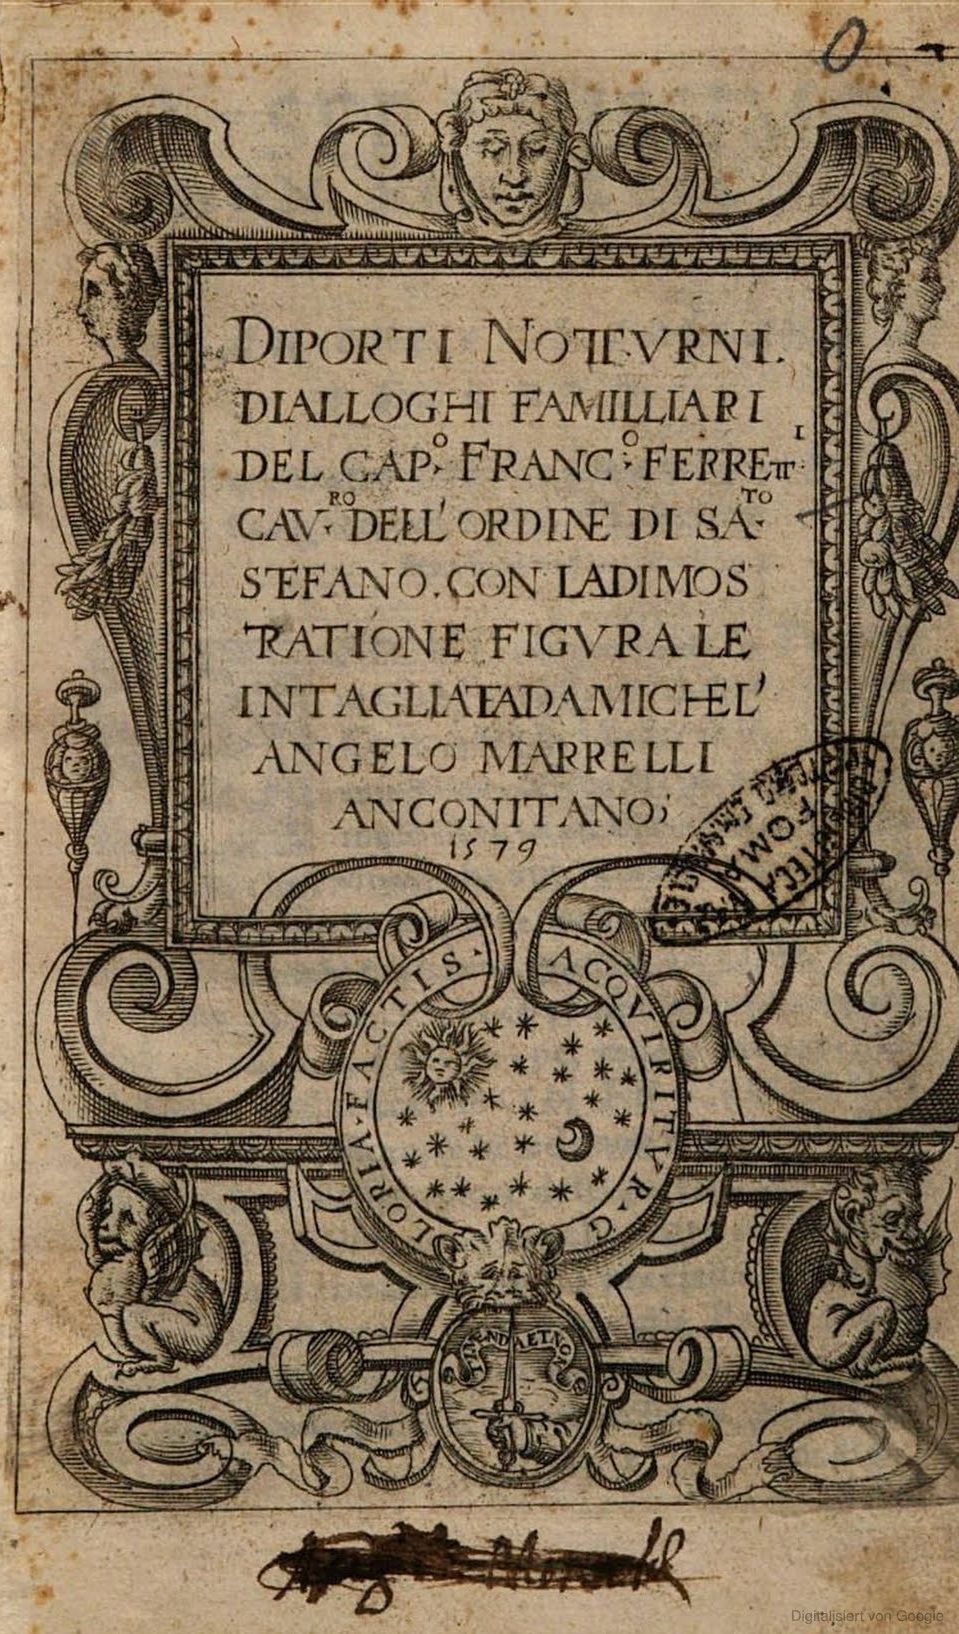 O
DIPORTI NOTTVRNI.
DIALLOGHI FAMILLIARI
DEL CAP.º FRANC.º FERRETTI
CAV.RO DELL' ORDINE DI SA.TO
STEFANO. CON LADIMOS
TRATIONE FIGVRALE
INTAGLIATA DA MICHEL'
ANGELO MARRELLI
ANCONITANO;
1579
ACQVIRITVR. GLORIA. FACTIS.
ET NON
Digitalisiert von Google